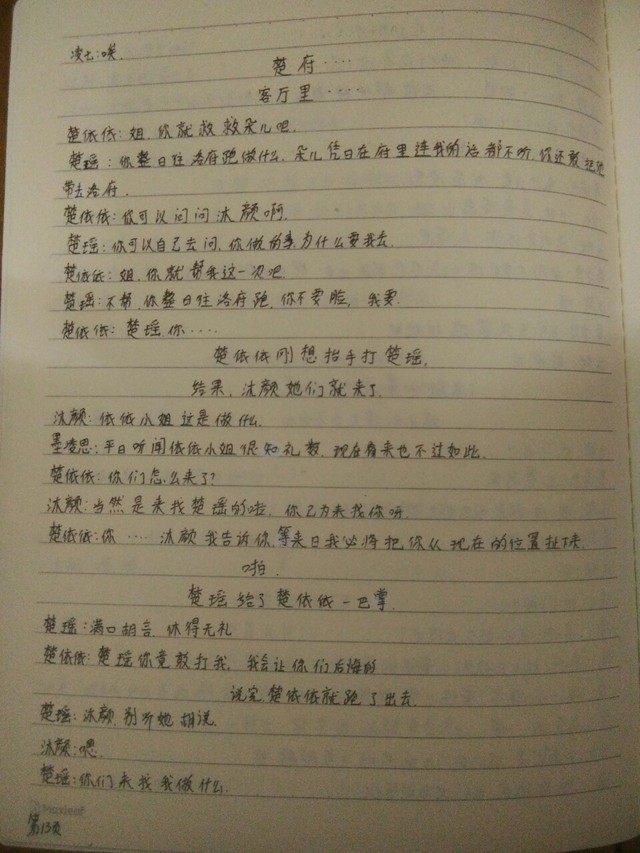 凌七:唉.
楚府····
客厅里····
楚依依:姐,你就救救朵儿吧.
楚瑶:你整日往洛府跑做什么,朵儿凭日在府里连我的话都不听,你还敢把她
带去洛府.
楚依依:你可以问问沐颜啊.
楚瑶:你可以自己去问,你做的事为什么要我去.
楚依依:姐,你就帮我这一次吧
楚瑶:不帮,你整日往洛府跑,你不要脸,我要.
楚依依:楚瑶,你····
楚依依刚想抬手打楚瑶,
结果,沐颜她们就来了.
沐颜:依依小姐这是做什么.
墨凌思:平日听闻依依小姐很知礼数,现在看来也不过如此.
楚依依:你们怎么来了?
沐颜:当然是来找楚瑶的啦,你以为来找你呀.
楚依依:你····沐颜我告诉你,等来日我必将把你从现在的位置扯下来.
啪.
楚瑶给了楚依依一巴掌.
楚瑶:满口胡言,休得无礼
楚依依:楚瑶你竟敢打我,我会让你们后悔的
说完,楚依依就跑了出去.
楚瑶:沐颜,别听她胡说.
沐颜:嗯.
楚瑶:你们来找我做什么.
Maxleaf
第13页